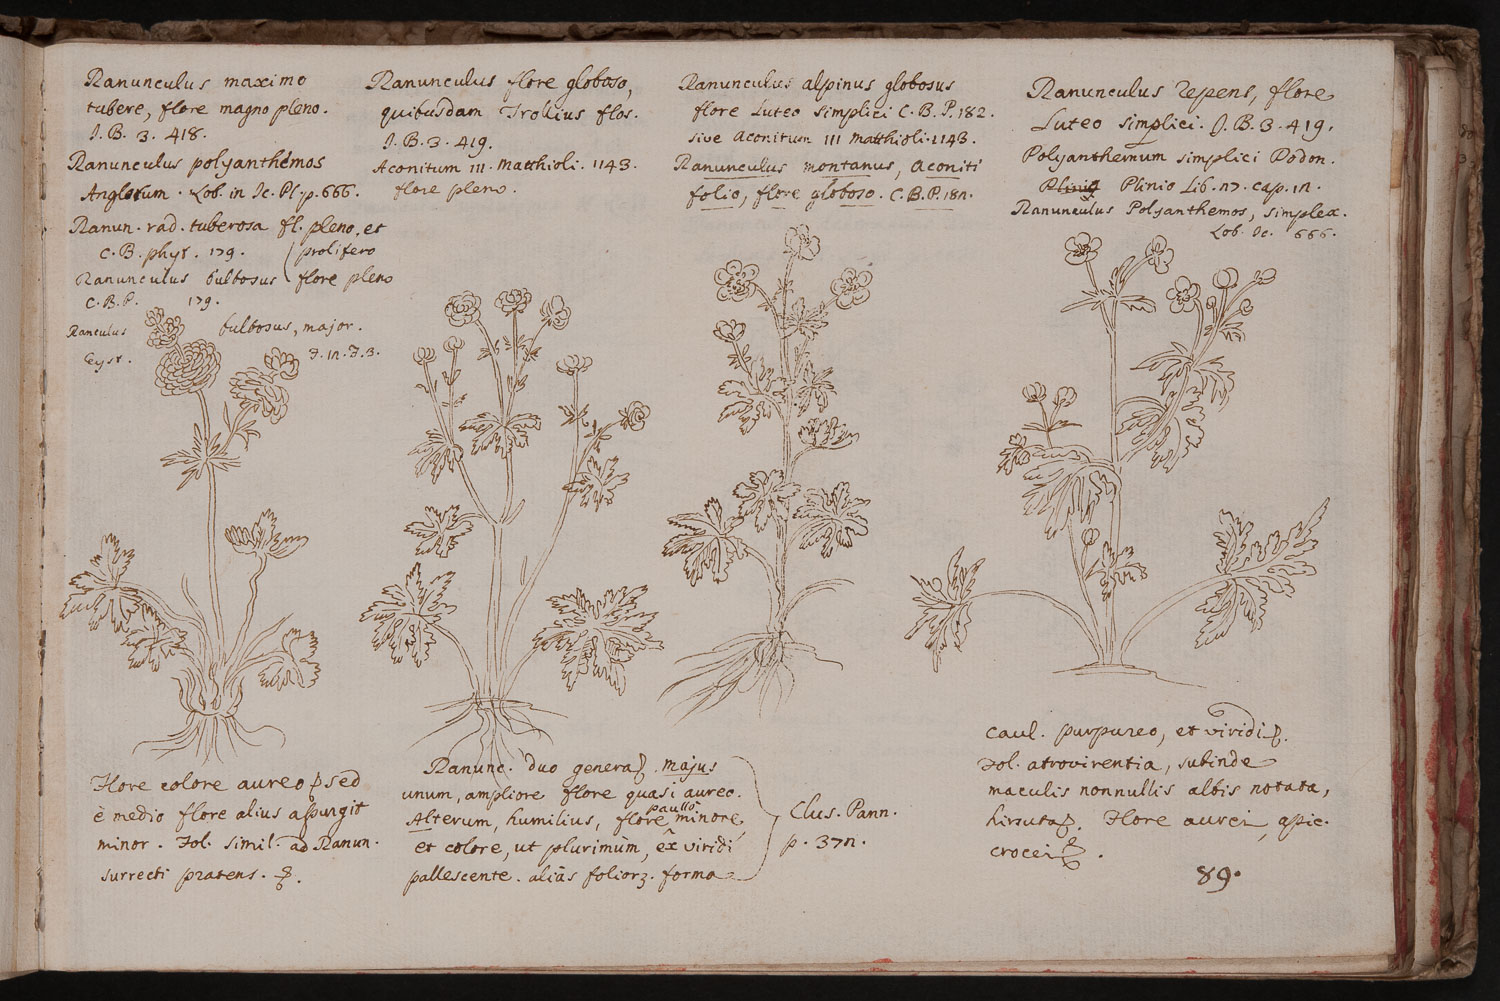 Ranunculus maximo
tubere, flore magno pleno.
J. B. 3. 418.
Ranunculus polyanthémos
Anglorum. Lob. in Ic. Pl. p. 666.
Ranun. rad. tuberosa fl. pleno, et
C. B. phyt. 179. (prolifero
Ranunculus bulbosus (flore pleno
C. B. P. 179.
Ranculus bulbosus, major.
Eyst.
Ranunculus flore globoso,
quibusdam Trollius flos.
J. B. 3. 419.
Aconitum III. Matthioli. 1143.
flore pleno.
Ranunculus alpinus globosus
flore Luteo simplici C. B. P. 182.
sive Aconitum III Matthioli. 1143.
Ranunculus montanus, Aconiti
folio, flore globoso. C. B. P. 182.
Ranunculus repens, flore
Luteo simplici. J. B. 3. 419.
Polyanthemum simplici Dodon.
Plinio Lib. 27. cap. 12.
Ranunculus Polyanthemos, simplex.
Lob. Ic. 666.
Flore colore aureo, sed
è medio flore alius assurgit
minor. Fol. simil. ad Ranun.
surrecti pratens.
Ranunc. duo genera. majus
unum, ampliore flore quasi aureo.
Alterum, humilius, flore paullo minore,
et colore, ut plurimùm, ex viridi
pallescente. aliàs foliorꝫ. forma
Clus. Pann.
p. 372.
caul. purpureo, et viridi.
Fol. atrovirentia, subinde
maculis nonnullis albis notata,
hirsuta. Flore aurei, apic.
crocei.
89.